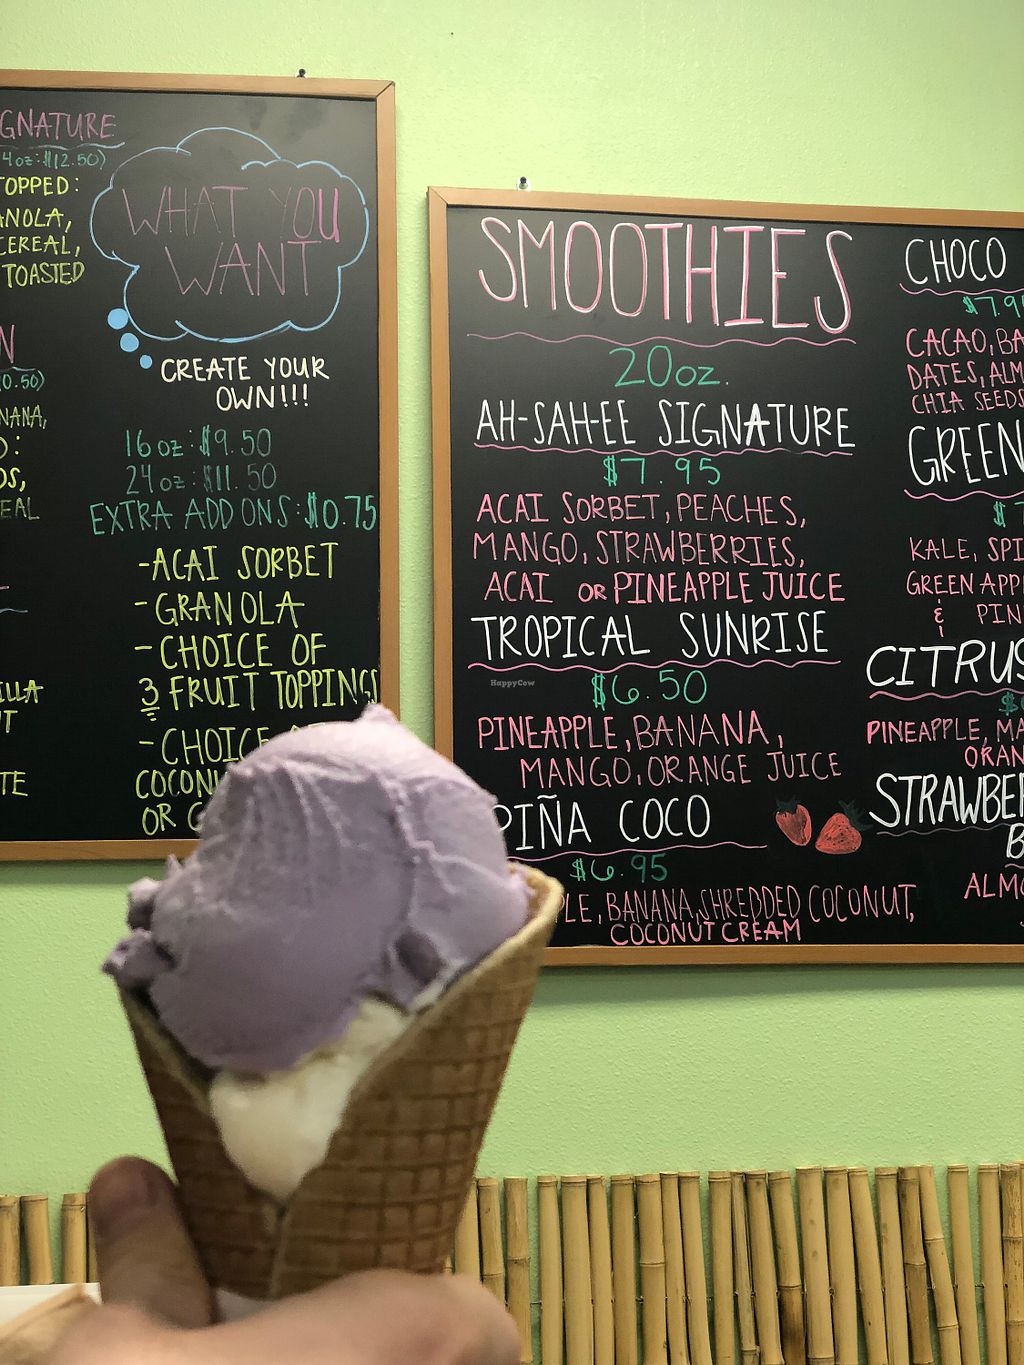 GNATURE
4oz:$12.50)
TOPPED:
CEREAL,
TOASTED
N
0.50)
WHAT YOU
WANT
CREATE YOUR
OWN!!!
16oz:$9.50
24oz:$11.50
EXTRA ADD ONS:$0.75
-ACAI SORBET
-GRANOLA
-CHOICE OF
3 FRUIT TOPPINGS
-CHOICE
OR
SMOOTHIES
20oz.
AH-SAH-EE SIGNATURE
$7.95
ACAI SORBET, PEACHES,
MANGO, STRAWBERRIES,
ACAI OR PINEAPPLE JUICE
TROPICAL SUNRISE
HappyCow
$6.50
PINEAPPLE, BANANA,
MANGO, ORANGE JUICE
PIÑA COCO
$6.95
PLE, BANANA, SHREDDED COCONUT,
COCONUT CREAM
CHOCO
$7.9
CACAO, BA
DATES, ALM
CHIA SEEDS
GREEN
$7
KALE, SPI
GREEN APP
& PIN
CITRUS
PINEAPPLE, MA
ORAN
STRAWBE
B
ALMO